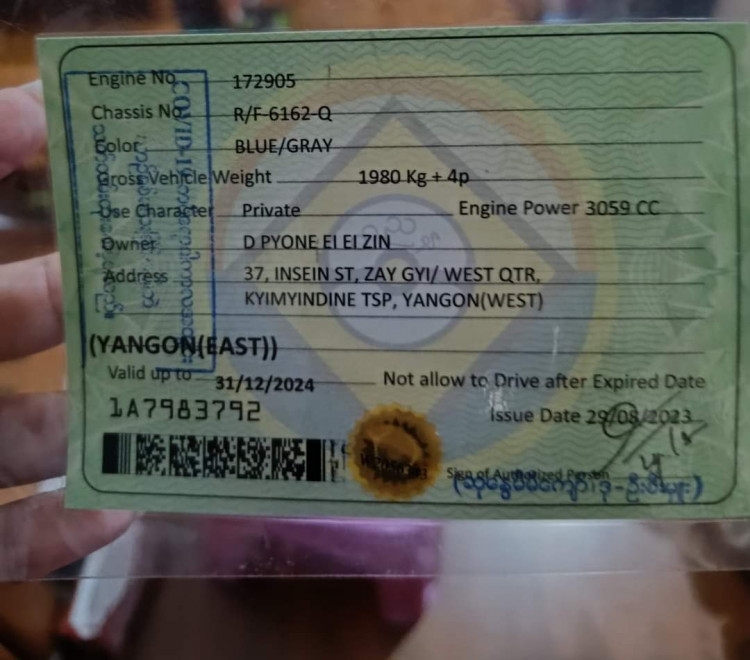 Engine No. 172905
Chassis No. R/F-6162-Q
Color BLUE/GRAY
Gross Vehicle Weight 1980 Kg + 4p
Use Character Private Engine Power 3059 CC
Owner D PYONE EI EI ZIN
Address 37, INSEIN ST, ZAY GYI/ WEST QTR,
KYIMYINDINE TSP, YANGON(WEST)
(YANGON(EAST))
Valid up to 31/12/2024 Not allow to Drive after Expired Date
1A7983792 Issue Date 29/08/2023
Sign of Authorized Person
COVID-19